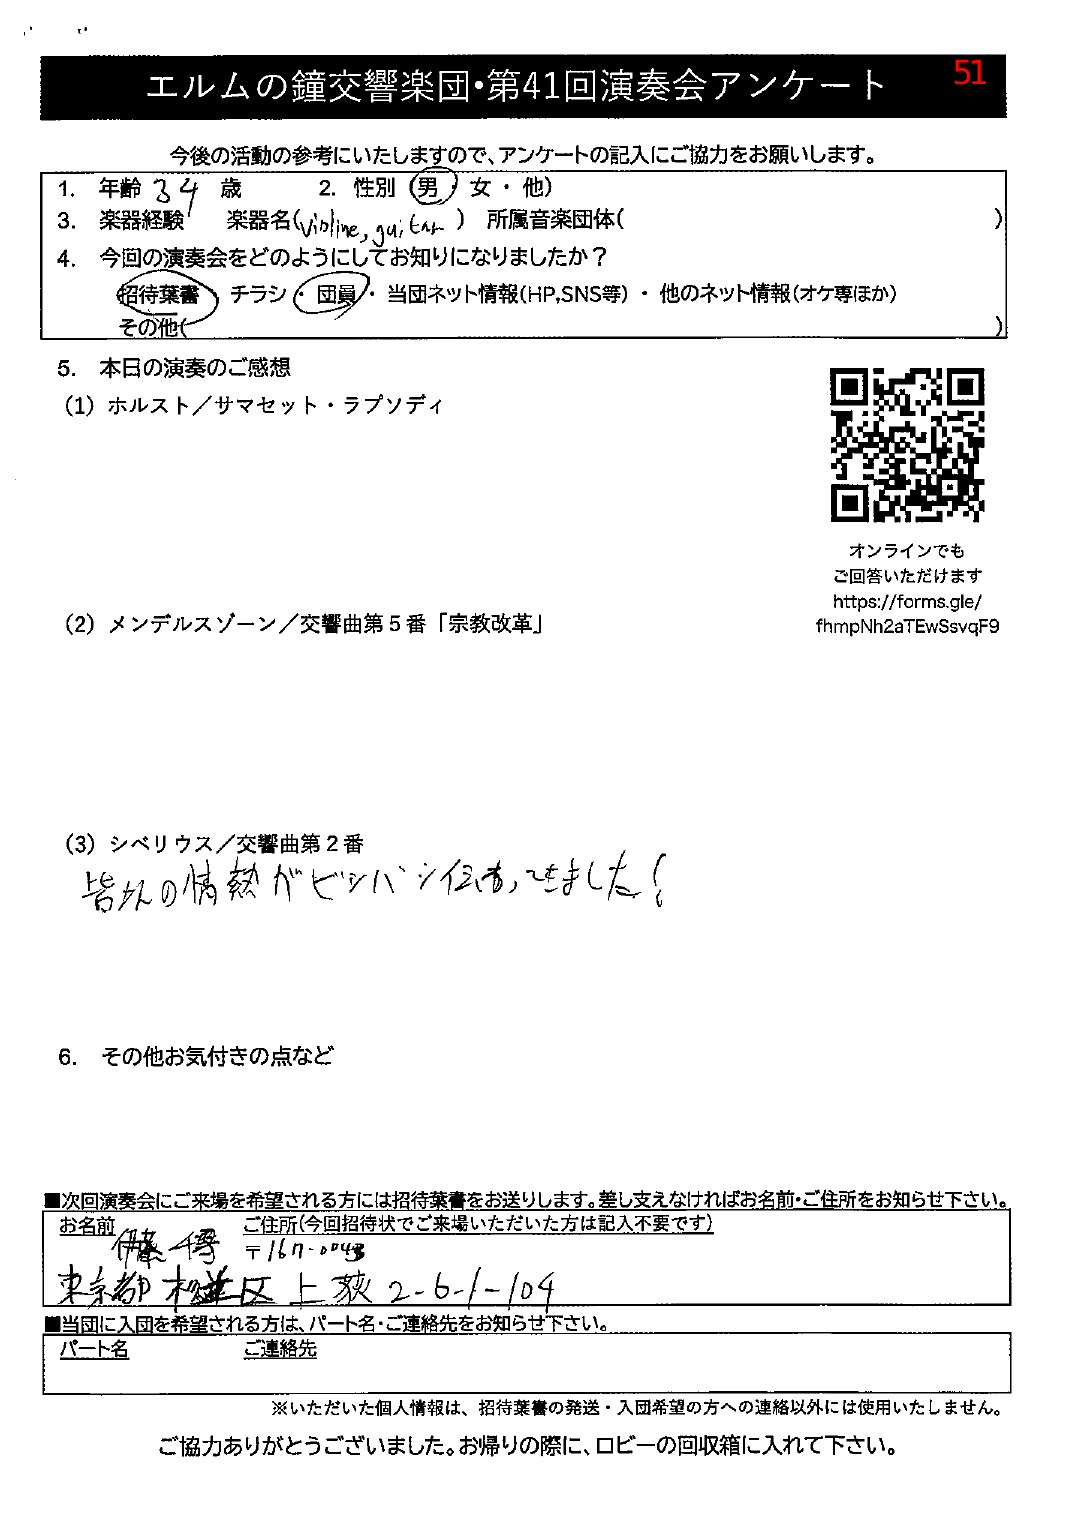 51
エルムの鐘交響楽団・第41回演奏会アンケート
今後の活動の参考にいたしますので、アンケートの記入にご協力をお願いします。
1. 年齢 34 歳 2. 性別 (男・女・他)
3. 楽器経験 楽器名(violine, guitar) 所属音楽団体( )
4. 今回の演奏会をどのようにしてお知りになりましたか?
招待葉書 チラシ・団員・当団ネット情報(HP,SNS等)・他のネット情報(オケ専ほか)
その他( )
5. 本日の演奏のご感想
(1) ホルスト/サマセット・ラプソディ
オンラインでも
ご回答いただけます
https://forms.gle/
fhmpNh2aTEwSsvqF9
(2) メンデルスゾーン/交響曲第5番「宗教改革」
(3) シベリウス/交響曲第2番
皆さんの情熱がビシバシ伝わってきました!
6. その他お気付きの点など
■次回演奏会にご来場を希望される方には招待葉書をお送りします。差し支えなければお名前・ご住所をお知らせ下さい。
お名前 ご住所(今回招待状でご来場いただいた方は記入不要です)
伊藤 〒167-0043
東京都杉並区上荻2-6-1-104
■当団に入団を希望される方は、パート名・ご連絡先をお知らせ下さい。
パート名 ご連絡先
※いただいた個人情報は、招待葉書の発送・入団希望の方への連絡以外には使用いたしません。
ご協力ありがとうございました。お帰りの際に、ロビーの回収箱に入れて下さい。